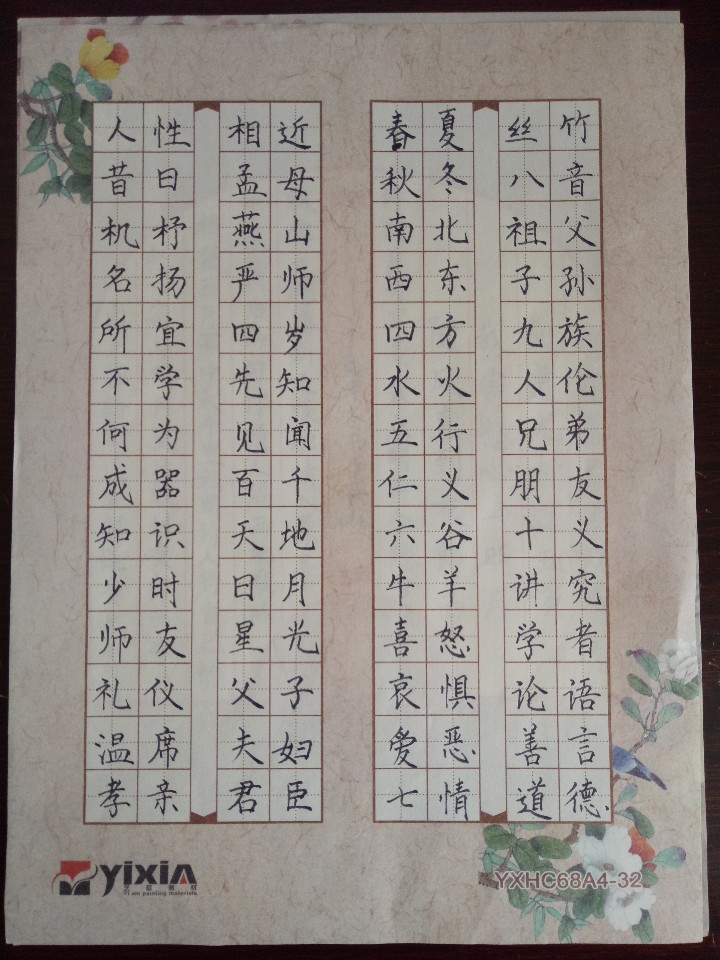 人性
昔日
机杼
名扬
所宜
不学
何为
成器
知识
少时
师友
礼仪
温席
孝亲
相近
孟母
燕山
严师
四岁
先知
见闻
百千
天地
日月
星光
父子
夫妇
君臣
春夏
秋冬
南北
西东
四方
水火
五行
仁义
六谷
牛羊
喜怒
哀惧
爱恶
七情
丝竹
八音
祖父
子孙
九族
人伦
兄弟
朋友
十义
讲究
学者
论语
善言
道德
yixiA
YXHC68A4-32